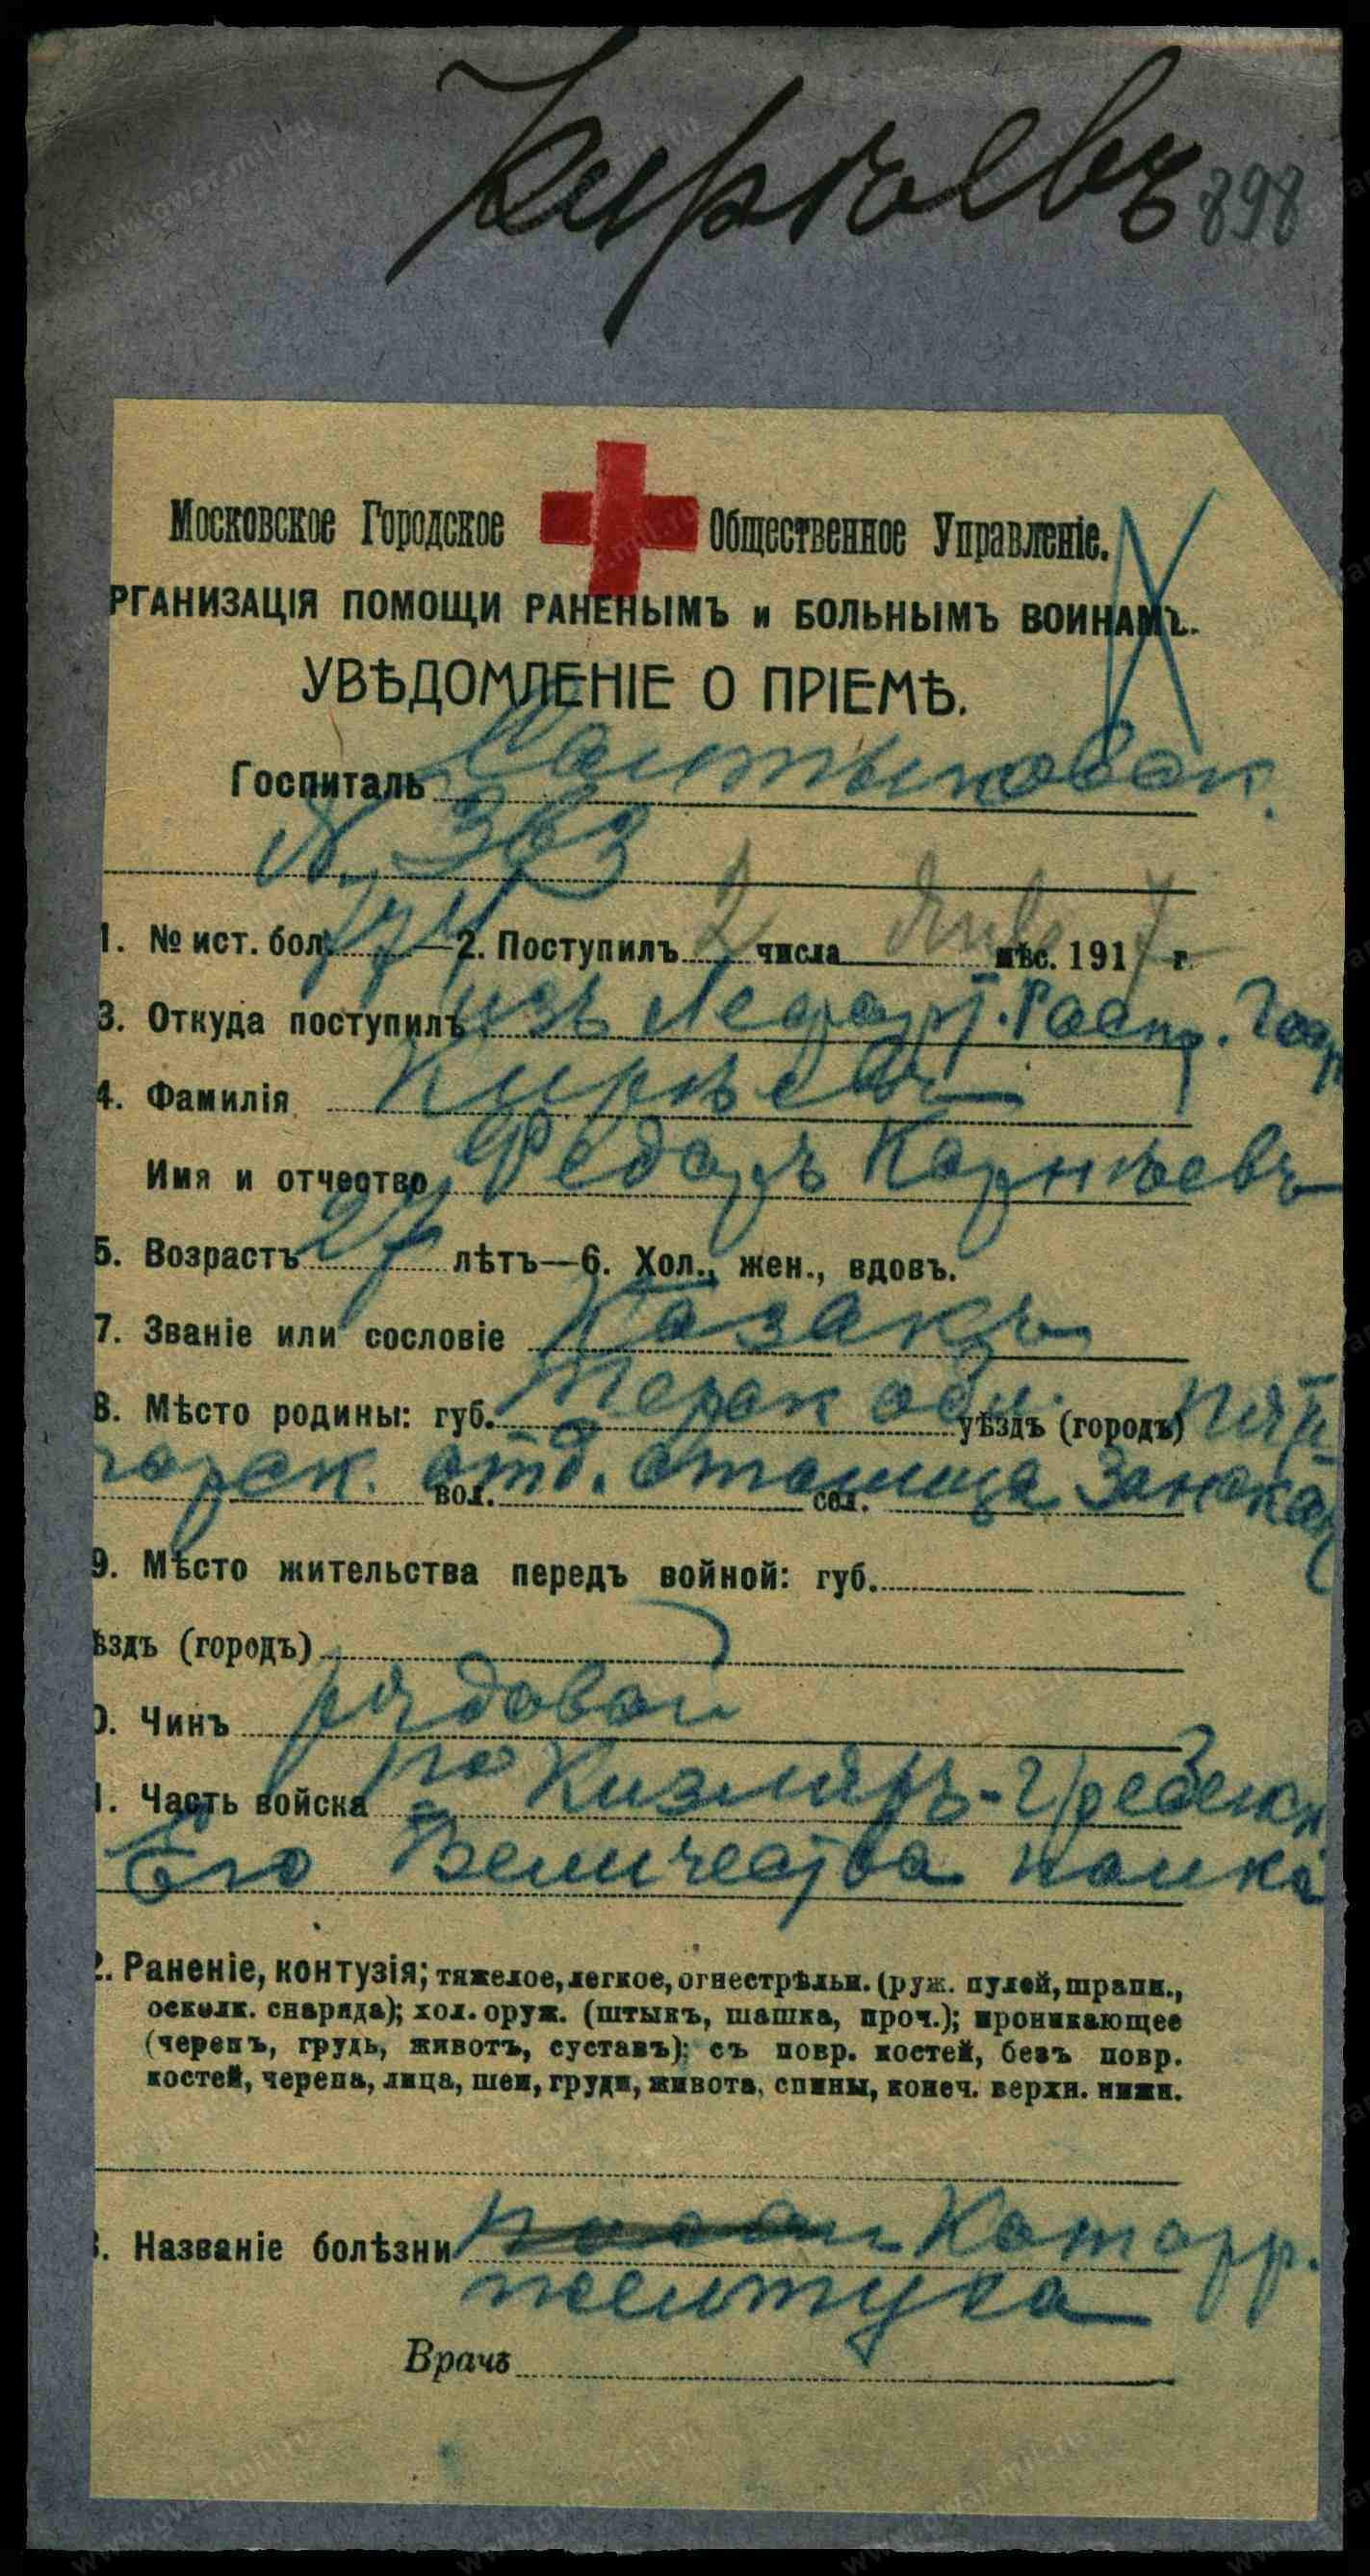 Кирѣевъ 898
Московское Городское Общественное Управленіе.
РГАНИЗАЦІЯ ПОМОЩИ РАНЕНЫМЪ и БОЛЬНЫМЪ ВОИНАМЪ.
УВѢДОМЛЕНІЕ О ПРІЕМѢ.
Госпиталь
№ 363
1. № ист. бол. —2. Поступилъ 2 числа мѣс. 1917 г.
3. Откуда поступилъ изъ
4. Фамилія Кирѣевъ
Имя и отчество Федоръ Корнѣевъ
5. Возрастъ лѣтъ—6. Хол., жен., вдовъ.
7. Званіе или сословіе Казакъ
8. Мѣсто родины: губ. Терск обл. уѣздъ (городъ) Пяти
горск. отд. вол. сел.
9. Мѣсто жительства передъ войной: губ.
ѣздъ (городъ)
0. Чинъ рядовой
1. Часть войска Кизляръ-Гребенск
Его Величества полка
2. Раненіе, контузія; тяжелое, легкое, огнестрѣльн. (руж. пулей, шрапн.,
осколк. снаряда); хол. оруж. (штыкъ, шашка, проч.); проникающее
(черепъ, грудь, животъ, суставъ); съ повр. костей, безъ повр.
костей, черепа, лица, шеи, груди, живота, спины, конеч. верхн. нижн.
3. Названіе болѣзни Катарр.
желтуха
Врачъ